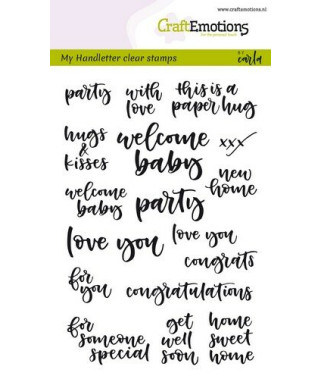 www.craftemotions.nl
CraftEmotions
My Handletter clear stamps
by
carla
party
with
love
this is a
paper hug
hugs
&
kisses
welcome
baby
xxx
new
home
welcome
baby
party
love you
love you
congrats
for
you
congratulations
for
someone
special
get
well
soon
home
sweet
home